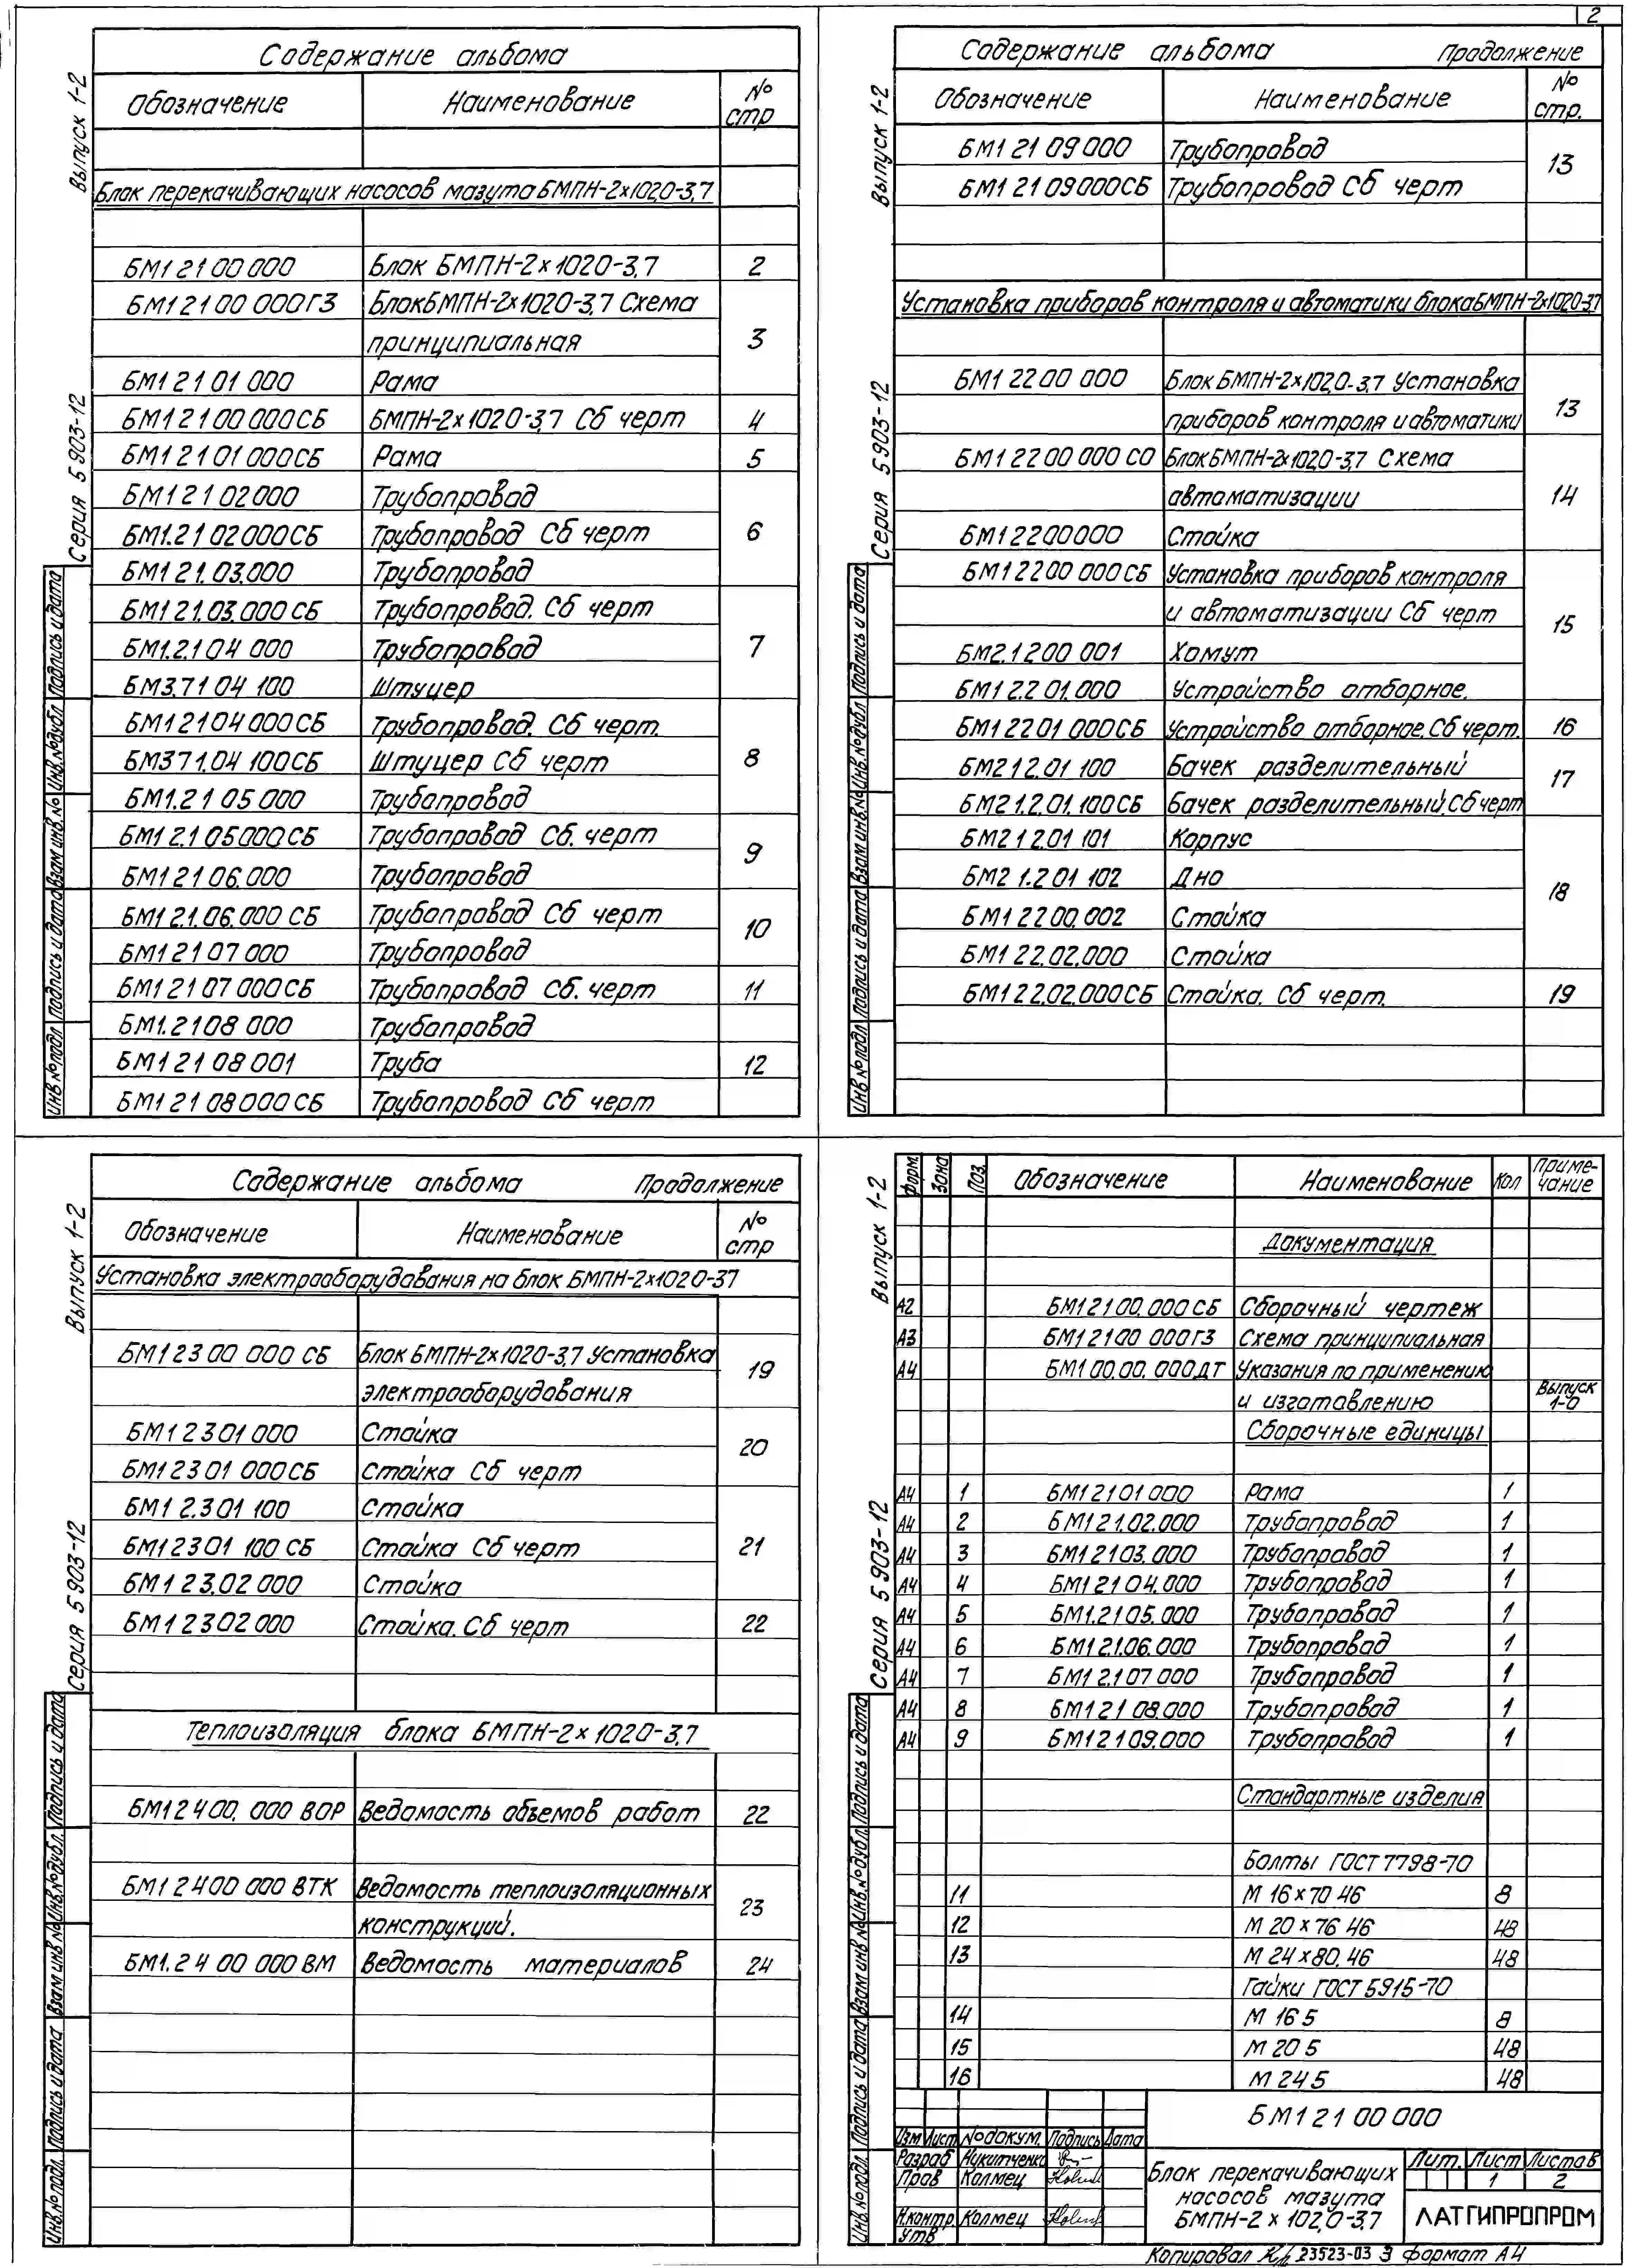 2
Содержание альбома
Обозначение Наименование № стр
Блок перекачивающих насосов мазута БМПН-2х102,0-3,7
БМ1 2 1 00 000 Блок БМПН-2х1020-3,7 2
БМ1 2 1 00 000 ГЗ Блок БМПН-2х1020-3,7 Схема
принципиальная 3
БМ1 2 1 01 000 Рама
БМ1 2 1 00 000 СБ БМПН-2х1020-3,7 Сб черт 4
БМ1 2 1 01 000 СБ Рама 5
БМ1 2 1 02 000 Трубопровод
БМ1.2 1 02 000 СБ Трубопровод Сб черт 6
БМ1 2 1.03.000 Трубопровод
БМ1 2 1.03.000 СБ Трубопровод. Сб черт
БМ1.2.1 04 000 Трубопровод 7
БМ3.7 1 04 100 Штуцер
БМ1 2 1 04 000 СБ Трубопровод. Сб черт.
БМ3 7 1.04 100 СБ Штуцер Сб черт 8
БМ1.2 1 05 000 Трубопровод
БМ1 2.1 05 000 СБ Трубопровод Сб. черт
БМ1 2 1 06.000 Трубопровод 9
БМ1 2.1.06.000 СБ Трубопровод Сб черт
БМ1 2 1 07 000 Трубопровод 10
БМ1 2 1 07 000 СБ Трубопровод Сб. черт 11
БМ1.2 1 08 000 Трубопровод
БМ1 2 1 08 001 Труба 12
БМ1 2 1 08 000 СБ Трубопровод Сб черт
Выпуск 1-2
Серия 5 903-12
Инв № подл Подпись и дата Взам инв. № Инв. № дубл Подпись и дата
Содержание альбома Продолжение
Обозначение Наименование № стр.
БМ1 2 1 09 000 Трубопровод
БМ1 2 1 09 000 СБ Трубопровод Сб черт 13
Установка приборов контроля и автоматики блока БМПН-2х1020-3,7
БМ1 2 2 00 000 Блок БМПН-2х102,0-3,7 Установка
приборов контроля и автоматики 13
БМ1 2 2 00 000 СО Блок БМПН-2х102,0-3,7 Схема
автоматизации 14
БМ1 2 2 00 000 Стойка
БМ1 2 2 00 000 СБ Установка приборов контроля
и автоматизации Сб черт
БМ2.1 2 00 001 Хомут 15
БМ1 2.2 01.000 Устройство отборное.
БМ1 2 2 01 000 СБ Устройство отборное. Сб черт. 16
БМ2 1 2.01 100 Бачек разделительный
БМ2 1.2.01.100 СБ Бачек разделительный. Сб черт 17
БМ2 1 2.01 101 Корпус
БМ2 1.2 01 102 Дно
БМ1 2 2 00.002 Стойка 18
БМ1 2 2.02.000 Стойка
БМ1 2 2.02.000 СБ Стойка. Сб черт. 19
Выпуск 1-2
Серия 5 903-12
Инв № подл Подпись и дата Взам инв. № Инв. № дубл Подпись и дата
Содержание альбома Продолжение
Обозначение Наименование № стр
Установка электрооборудования на блок БМПН-2х1020-3,7
БМ1 2 3 00 000 СБ Блок БМПН-2х1020-3,7 Установка
электрооборудования 19
БМ1 2 3 01 000 Стойка
БМ1 2 3 01 000 СБ Стойка Сб черт 20
БМ1 2.3 01 100 Стойка
БМ1 2 3 01 100 СБ Стойка Сб черт 21
БМ1 2 3.02 000 Стойка
БМ1 2 3 02 000 Стойка. Сб черт 22
Теплоизоляция блока БМПН-2х1020-3,7
БМ1 2 4 00. 000 ВОР Ведомость объемов работ 22
БМ1 2 4 00 000 ВТК Ведомость теплоизоляционных
конструкций. 23
БМ1.2 4 00 000 ВМ Ведомость материалов 24
Выпуск 1-2
Серия 5 903-12
Инв. № подл. Подпись и дата Взам инв № Инв. № дубл. Подпись и дата
Форм. Зона Поз. Обозначение Наименование Кол Примечание
Документация
А2 БМ1 2 1 00. 000 СБ Сборочный чертеж
А3 БМ1 2 1 00 000 ГЗ Схема принципиальная
А4 БМ1 00.00. 000 ДТ Указания по применению
и изготовлению Выпуск 1-0
Сборочные единицы
А4 1 БМ1 2 1 01 000 Рама 1
А4 2 БМ1 2 1.02.000 Трубопровод 1
А4 3 БМ1 2 1 03.000 Трубопровод 1
А4 4 БМ1 2 1 04.000 Трубопровод 1
А4 5 БМ1.2 1 05.000 Трубопровод 1
А4 6 БМ1 2.1.06.000 Трубопровод 1
А4 7 БМ1 2.1 07 000 Трубопровод 1
А4 8 БМ1 2 1 08.000 Трубопровод 1
А4 9 БМ1 2 1 09.000 Трубопровод 1
Стандартные изделия
Болты ГОСТ 7798-70
11 М 16 х 70 46 8
12 М 20 х 76 46 48
13 М 24 х 80. 46 48
Гайки ГОСТ 5915-70
14 М 16 5 8
15 М 20 5 48
16 М 24 5 48
Выпуск 1-2
Серия 5 903-12
Инв. № подл. Подпись и дата Взам инв № Инв. № дубл. Подпись и дата
БМ1 2 1 00 000
Изм Лист № докум. Подпись Дата
Разраб Никитченко
Пров Колмец
Н.контр. Колмец
Утв
Блок перекачивающих
насосов мазута
БМПН-2 х 102,0-3,7
Лит. Лист Листов
1 2
ЛАТГИПРОПРОМ
Копировал 23523-03 3 формат А4